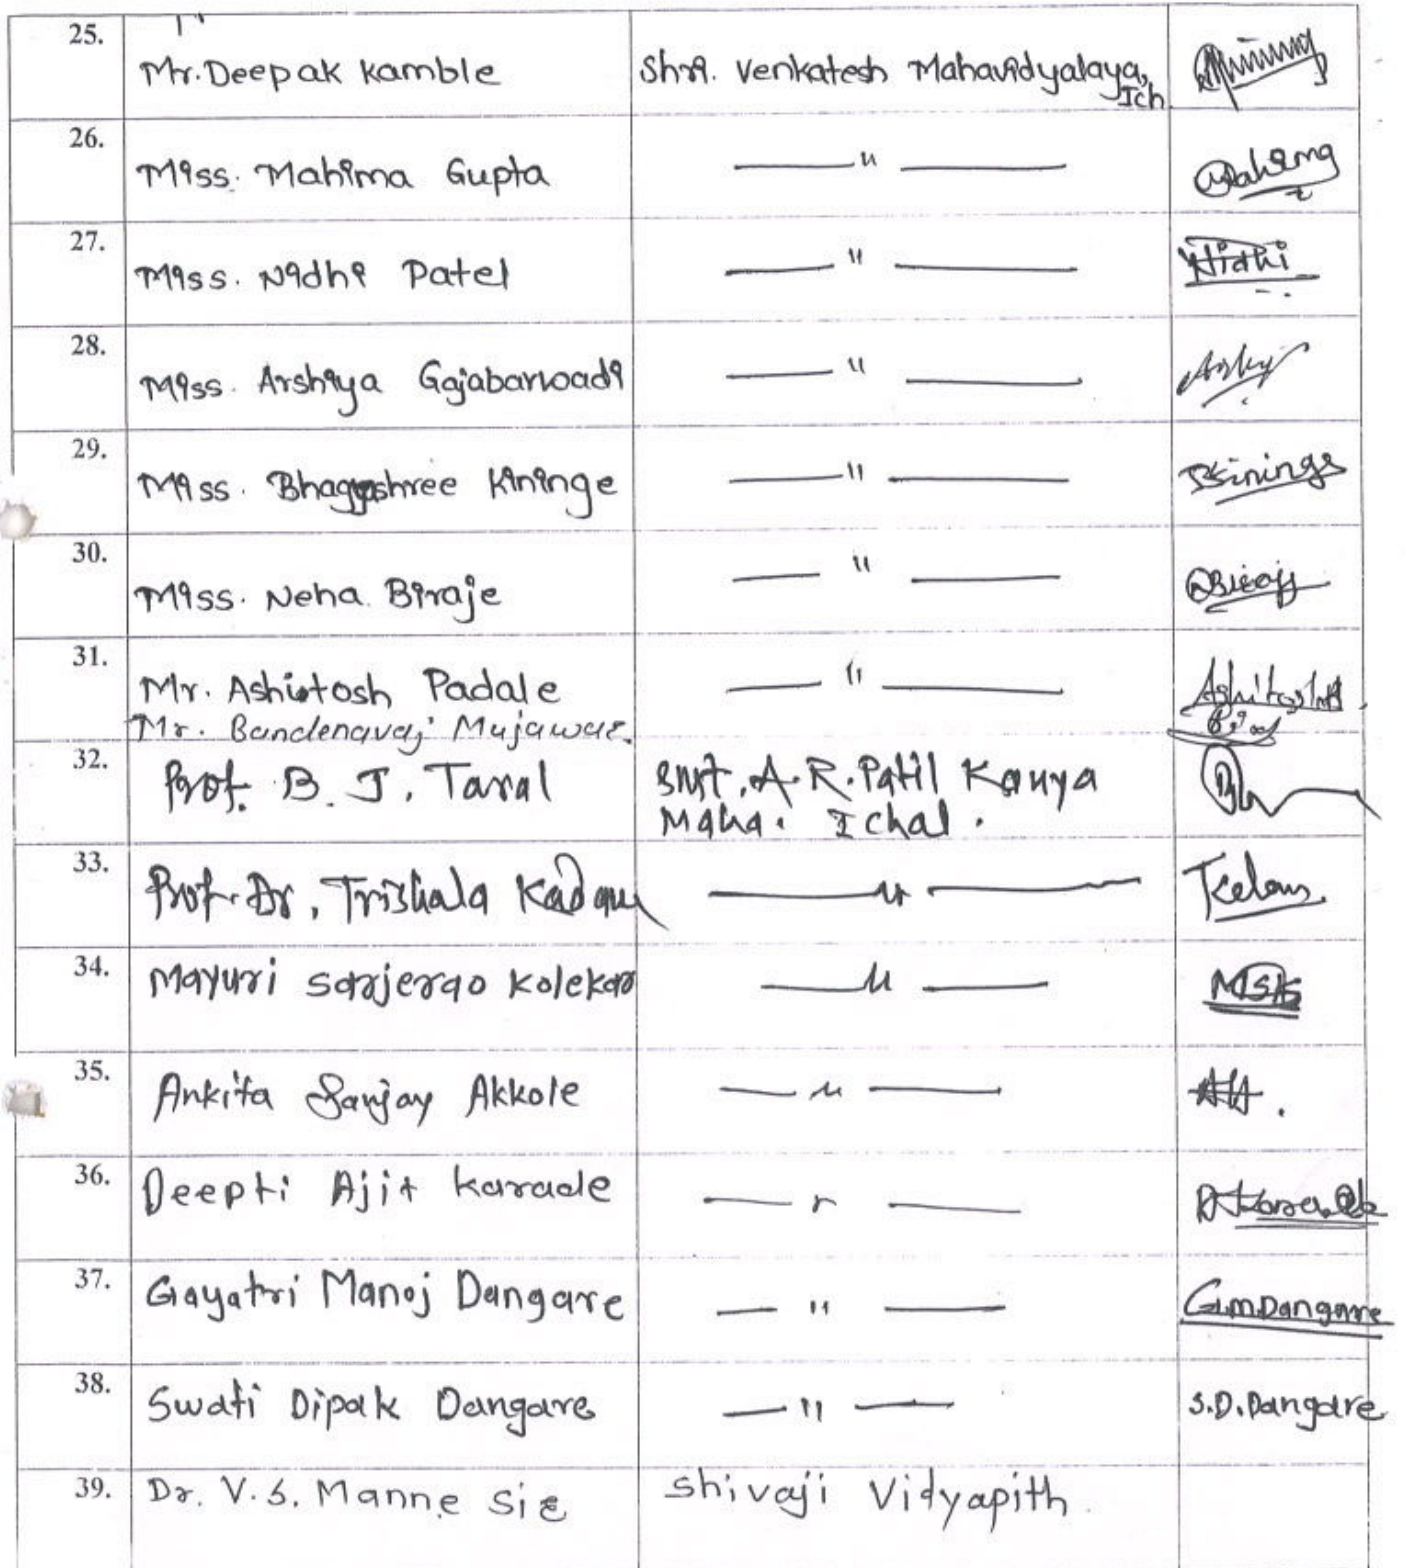 25. Mr. Deepak Kamble Shri. Venkatesh Mahavidyalaya, Ich
26. Miss. Mahima Gupta —— " ——
27. Miss. Nidhi Patel —— " —— Nidhi
28. Miss. Arshiya Gajabarwadi —— " ——
29. Miss. Bhagyashree Kininge —— " ——
30. Miss. Neha Biraje —— " ——
31. Mr. Ashutosh Padale —— " ——
Mr. Bandenavaj Mujawar.
32. Prof. B. J. Taral Smt. A. R. Patil Kanya
Maha. Ichal.
33. Prof. Dr. Trishala Kadam —— " ——
34. Mayuri Sarjerao Kolekar —— " —— MSK
35. Ankita Sanjay Akkole —— " ——
36. Deepti Ajit Karade —— " ——
37. Gayatri Manoj Dangare —— " —— G.m.Dangare
38. Swati Dipak Dangare —— " —— S.D.Dangare
39. Dr. V. S. Manne Sir Shivaji Vidyapith.